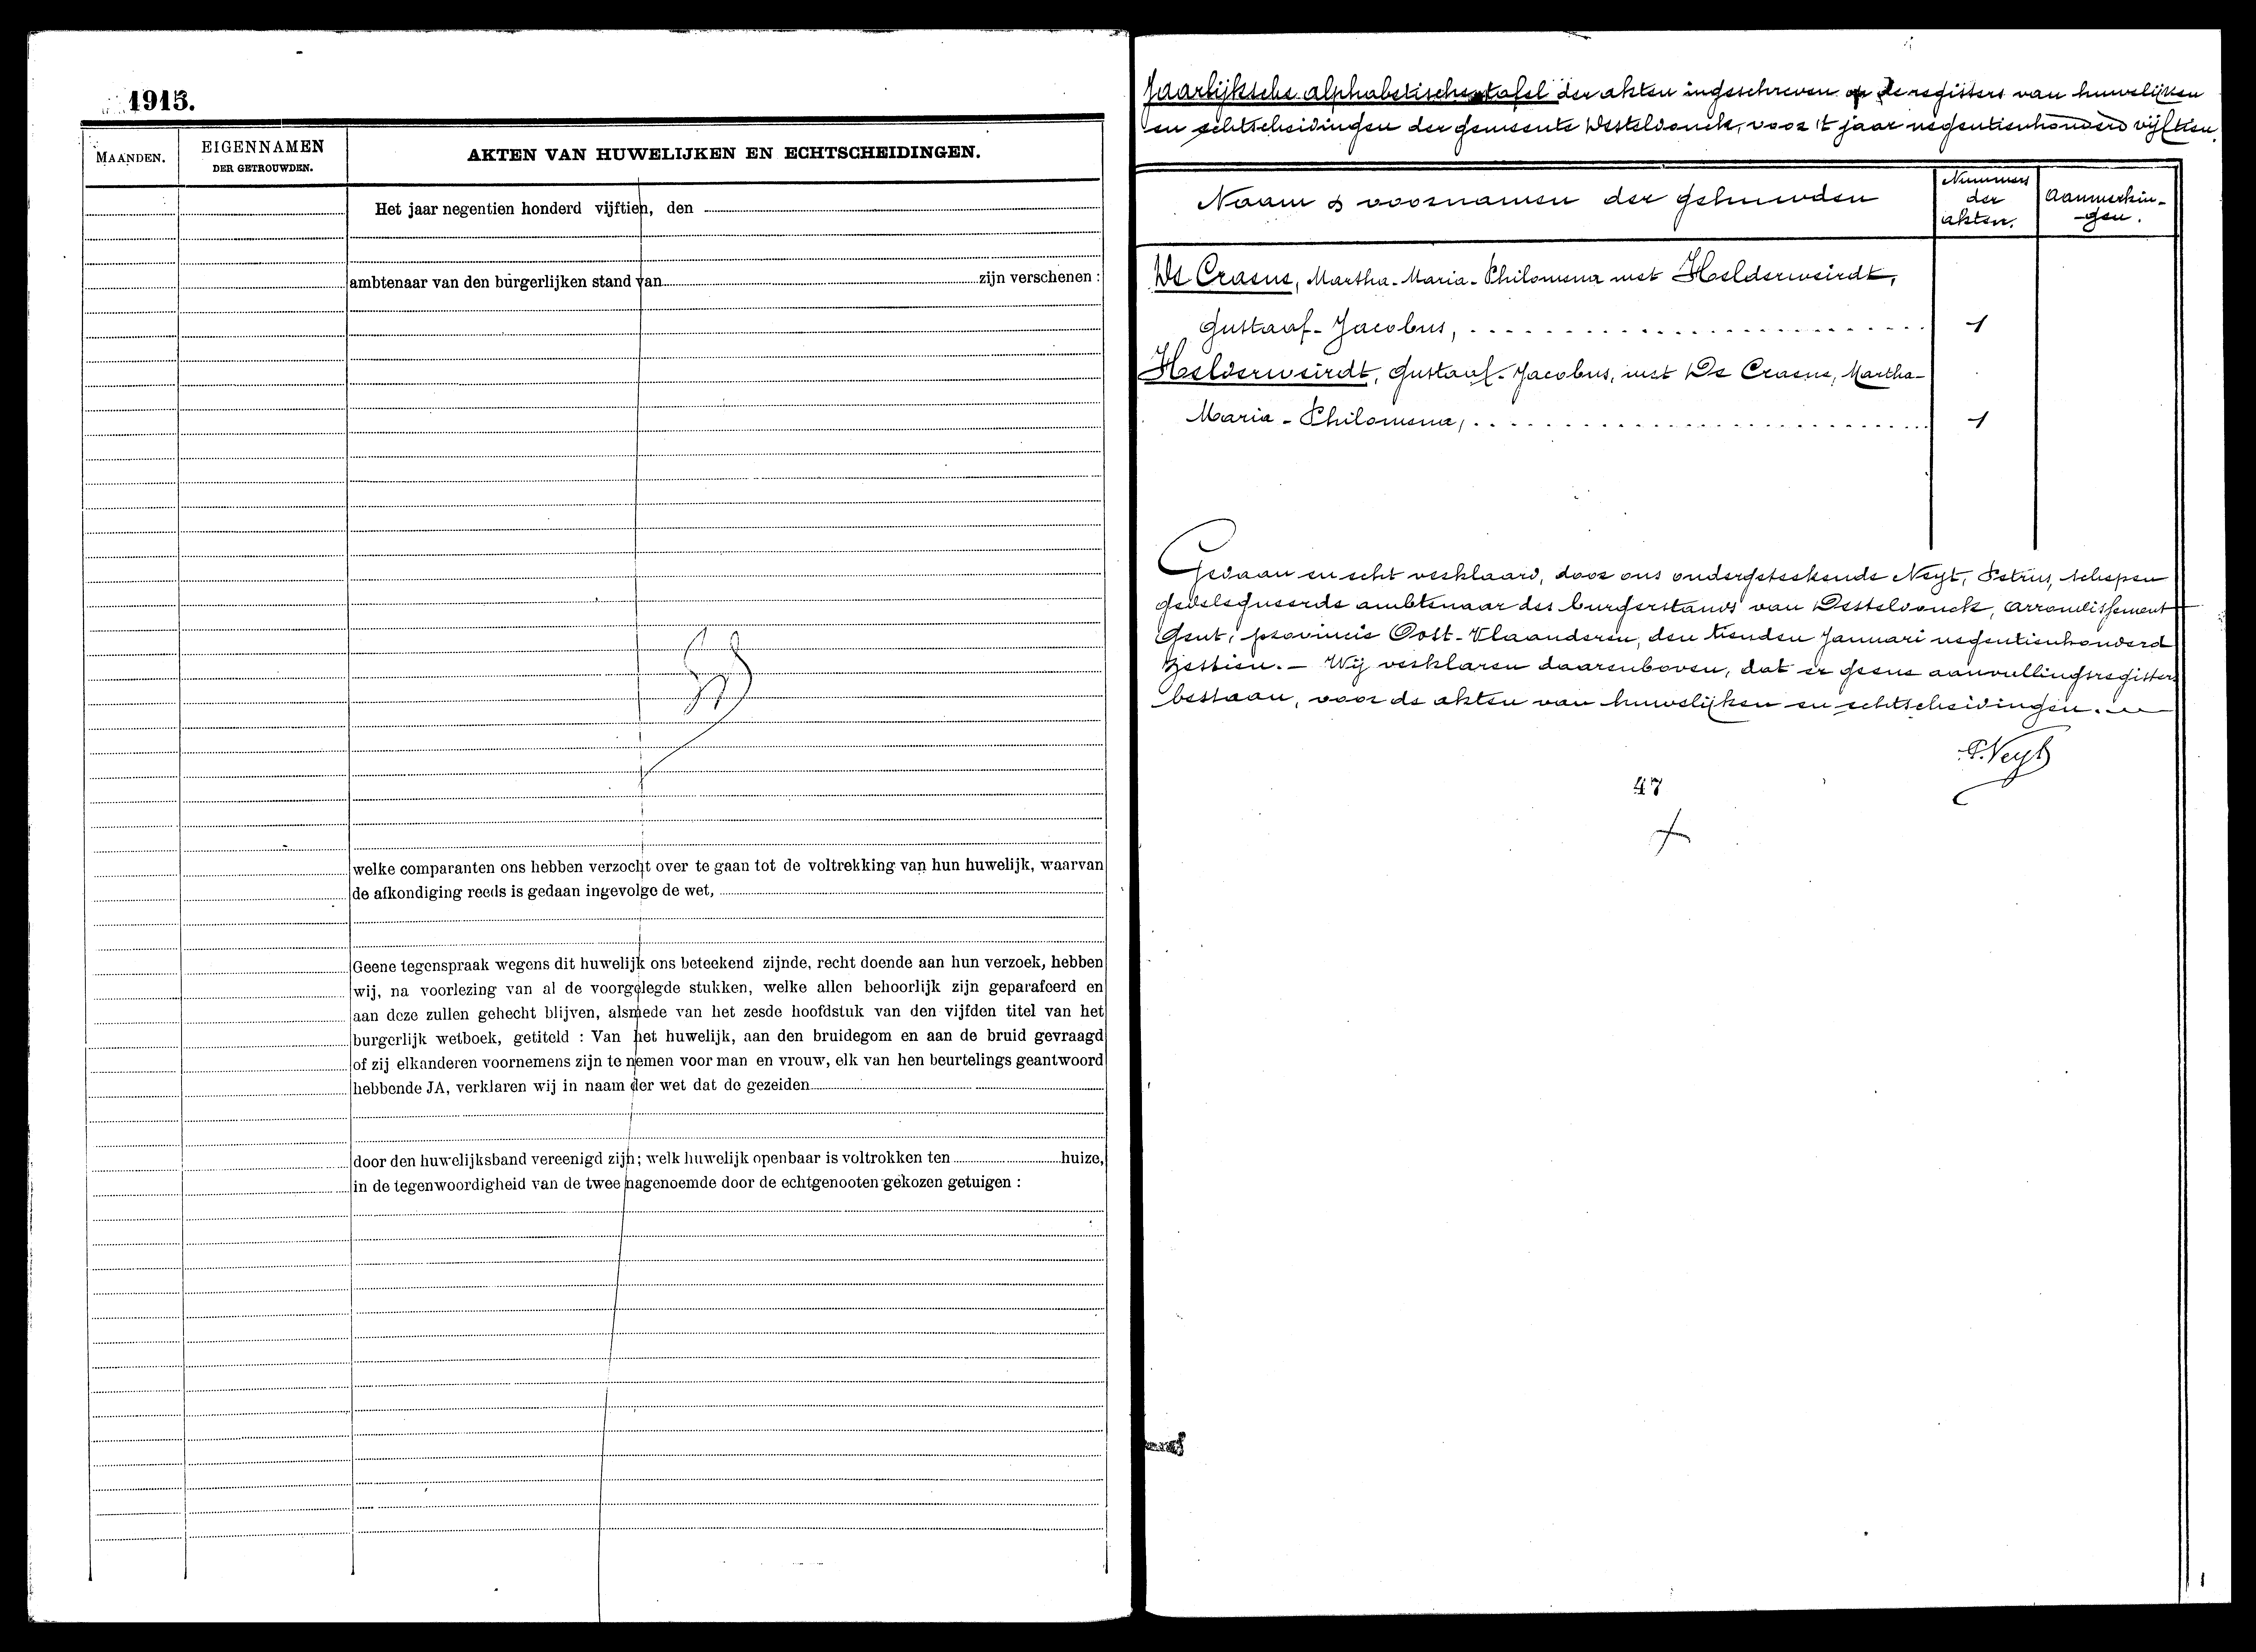 1915.
MAANDEN.
EIGENNAMEN
DER GETROUWDEN.
AKTEN VAN HUWELIJKEN EN ECHTSCHEIDINGEN.
Het jaar negentien honderd vijftien, den
ambtenaar van den burgerlijken stand van zijn verschenen :
welke comparanten ons hebben verzocht over te gaan tot de voltrekking van hun huwelijk, waarvan
de afkondiging reeds is gedaan ingevolge de wet,
Geene tegenspraak wegens dit huwelijk ons beteekend zijnde, recht doende aan hun verzoek, hebben
wij, na voorlezing van al de voorgelegde stukken, welke allen behoorlijk zijn geparafeerd en
aan deze zullen gehecht blijven, alsmede van het zesde hoofdstuk van den vijfden titel van het
burgerlijk wetboek, getiteld : Van het huwelijk, aan den bruidegom en aan de bruid gevraagd
of zij elkanderen voornemens zijn te nemen voor man en vrouw, elk van hen beurtelings geantwoord
hebbende JA, verklaren wij in naam der wet dat de gezeiden
door den huwelijksband vereenigd zijn; welk huwelijk openbaar is voltrokken ten huize,
in de tegenwoordigheid van de twee nagenoemde door de echtgenooten gekozen getuigen :
Jaarlijksche alphabetische tafel der akten ingeschreven op de registers van huwelijken
en echtscheidingen der gemeente Desteldonck, voor 't jaar negentienhonderd vijftien.
Naam & voornamen der gehuwden
Nummers
der
akten.
Aanmerkin-
gen.
De Craene, Martha-Maria-Philomena met Helderweirdt,
Gustaaf-Jacobus, 1
Helderweirdt, Gustaaf-Jacobus, met De Craene, Martha-
Maria-Philomena, 1
Gedaan en echt verklaard, door ons ondergeteekende Neyt, Petrus, schepen
gedelegueerde ambtenaar des burgerstands van Desteldonck, arrondissement
Gent, provincie Oost-Vlaanderen, den tienden Januari negentienhonderd
zestien. – Wij verklaren daarenboven, dat er geene aanvullingsregisters
bestaan, voor de akten van huwelijken en echtscheidingen.
P. Neyt
47